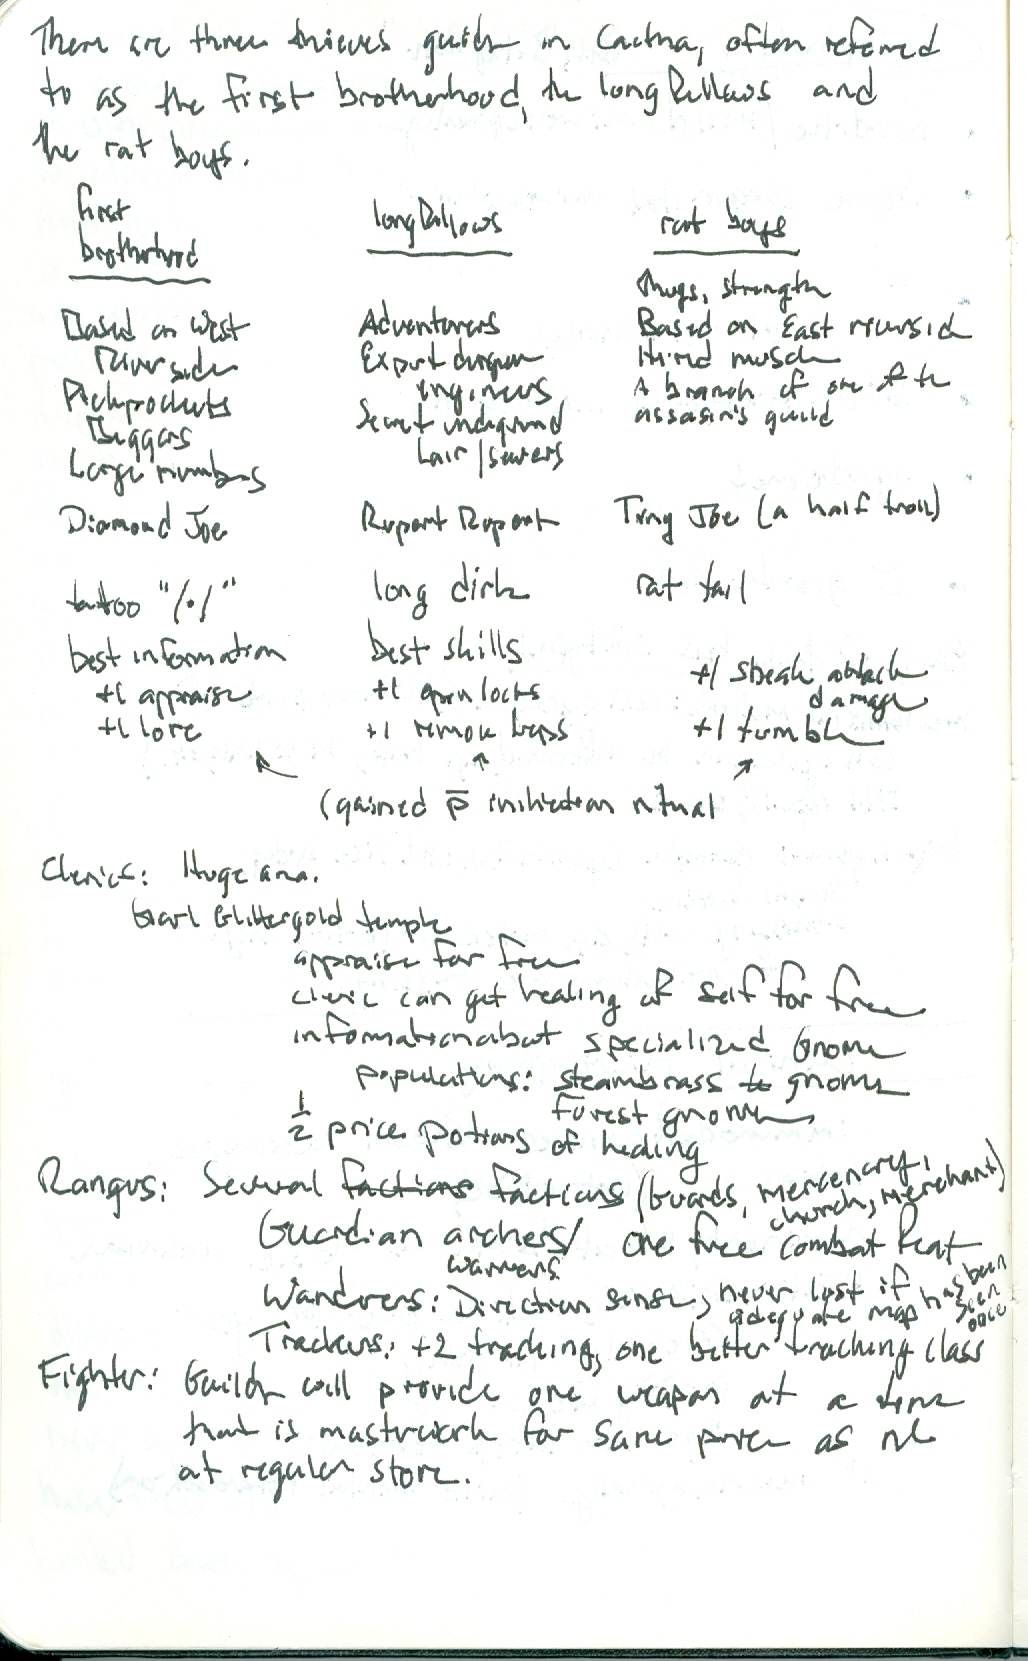 There are three thieves guilds in Cactna, often referred
to as the first brotherhood, the longfellows and
the rat boys.
first
brotherhood
longfellows
rat boys
Based on West
Riverside
Pickpockets
Beggars
Large numbers
Adventurers
Expert dungeon
engineers
Secret underground
Lair/sewers
Thugs, strength
Based on East riverside
Hired muscle
A branch of one of the
assasin's guild
Diamond Joe
Rupert Rupert
Tiny Joe (a half troll)
tattoo "/./"
long dirk
rat tail
best information
+1 appraise
+1 lore
best skills
+1 open locks
+1 remove traps
+1 sneak attack
damage
+1 tumble
(gained p̄ initiation ritual
Clerics: Huge area.
Garl Glittergold temple
appraise for free
cleric can get healing of self for free
information about specialized Gnome
populations: steambrass gnomes
forest gnomes
½ price potions of healing
Rangers: Several factions factions (Guards, mercenary,
church, merchant)
Guardian archers/ one free combat feat
warriors
Wanderers: Direction sense, never lost if
adequate map has been
seen
once
Trackers: +2 tracking, one better tracking class
Fighter: Guilds will provide one weapon at a time
that is masterwork for same price as
at regular store.